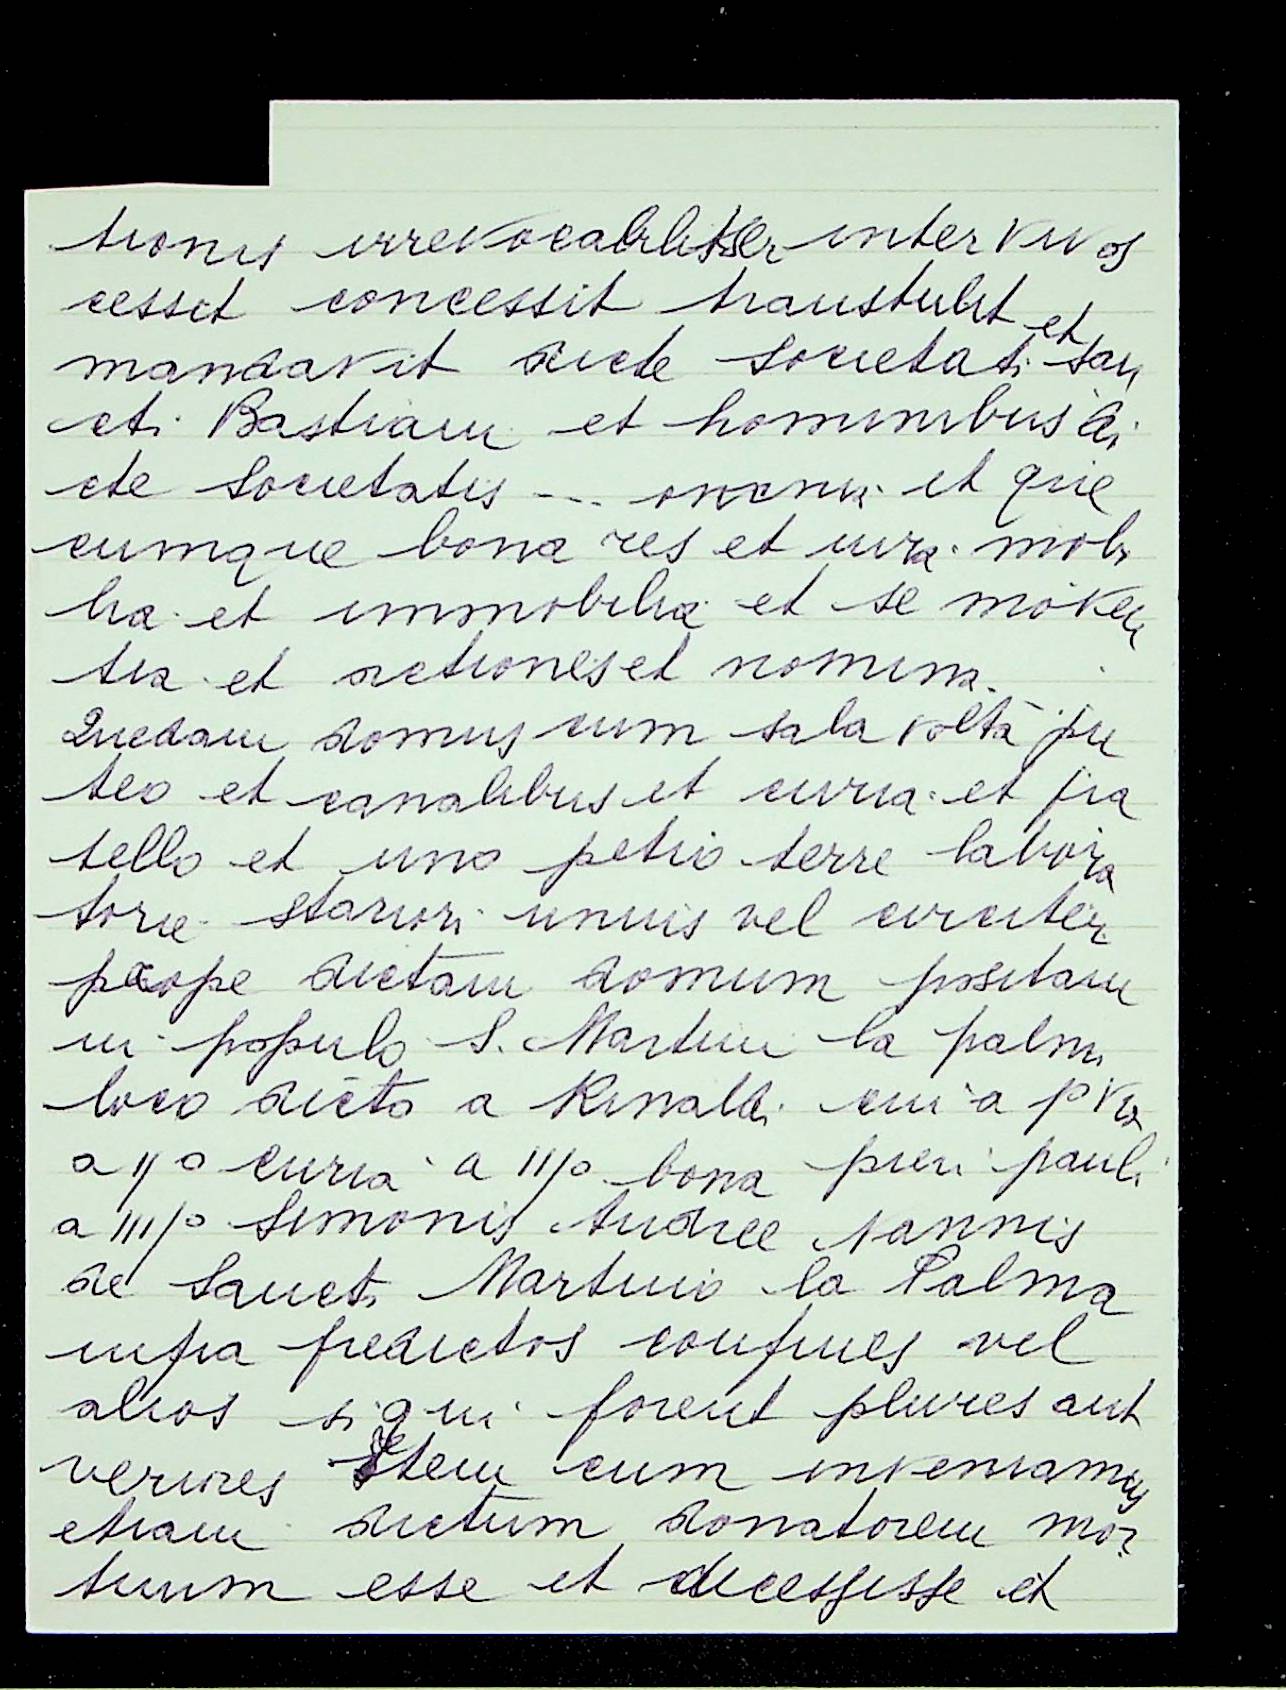 tionis irrevocabiliter inter vivos
cessit concessit transtulit et
mandavit dicte societati san
cti Bastiani et hominibus di
cte societatis --- omnia et que
cumque bona res et iura mobi
lia et immobilia et se moven
tia et actiones et nomina.
Quedam domus cum sala volta pu
teo et canalibus et curia et pra
tello et uno petio terre labora
torie stariori unius vel circiter
prope dictam domum positam
in populo S. Martini la palma
loco dicto a Rinaldi cui a p° via
a II° curia a III° bona pieri pauli
a IIII° Simonis Andree Nannis
de Sancti Martino la Palma
infra predictos confines vel
alios siqui forent plures aut
veriores Item cum inveniamus
etiam dictum donatorem mor
tuum esse et decessisse et